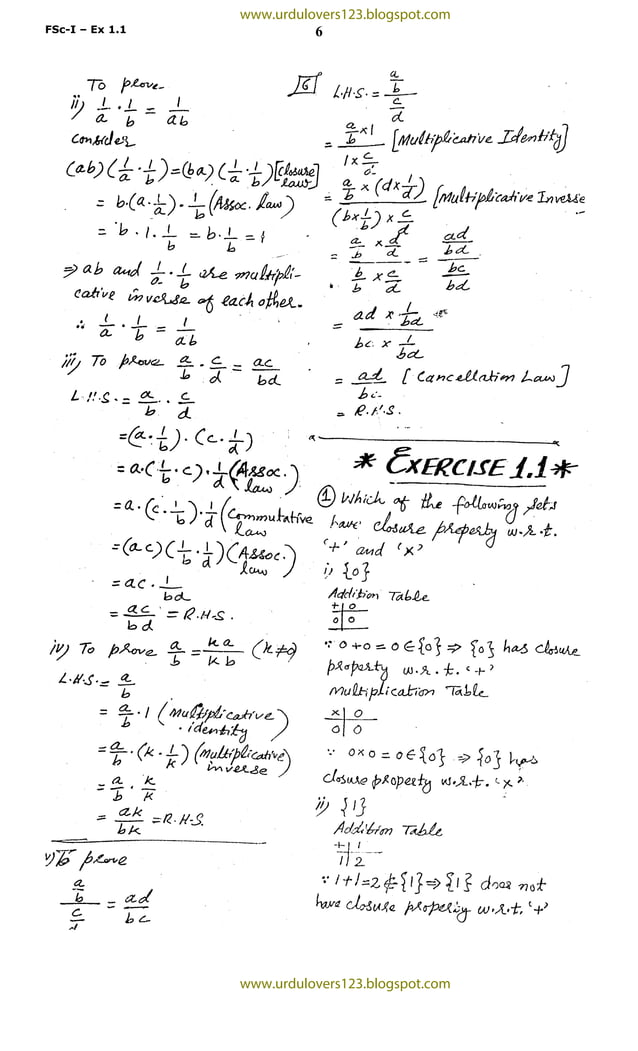 www.urdulovers123.blogspot.com
FSc-I – Ex 1.1
6
To prove
ii) 1/a · 1/b = 1/ab
Consider
(ab)(1/a · 1/b) = (ba)(1/a · 1/b) [closure law]
= b·(a·1/a)·1/b (Assoc. Law)
= b · 1 · 1/b = b · 1/b = 1
⇒ ab and 1/a · 1/b are multipli-
cative inverse of each other.
∴ 1/a · 1/b = 1/ab
iii) To prove a/b · c/d = ac/bd
L.H.S. = a/b · c/d
= (a·1/b)·(c·1/d)
= a·(1/b·c)·1/d (Assoc. law)
= a·(c·1/b)·1/d (Commutative Law)
= (ac)(1/b·1/d) (Assoc. law)
= ac · 1/bd
= ac/bd = R.H.S.
iv) To prove a/b = ka/kb (k≠0)
L.H.S. = a/b
= a/b · 1 (Multiplicative identity)
= a/b · (k·1/k) (multiplicative inverse)
= a/b · k/k
= ak/bk = R.H.S.
v) To prove
(a/b)/(c/d) = ad/bc
6 L.H.S. = (a/b)/(c/d)
= (a/b × 1)/(1 × c/d) [Multiplicative Identity]
= (a/b × (d×1/d))/((b×1/b) × c/d) [Multiplicative Inverse
= (a/b × d/d)/(b/b × c/d) = (ad/bd)/(bc/bd)
= (ad × 1/bd)/(bc × 1/bd)
= ad/bc [Cancellation Law]
= R.H.S.
* EXERCISE 1.1 *
① Which of the following sets
have closure property w.r.t.
'+' and '×'
i) {0}
Addition Table
+ | 0
0 | 0
∵ 0+0=0∈{0} ⇒ {0} has closure
property w.r.t. '+'
Multiplication Table
× | 0
0 | 0
∵ 0×0=0∈{0} ⇒ {0} has
closure property w.r.t. '×'
ii) {1}
Addition Table
+ | 1
1 | 2
∵ 1+1=2∉{1} ⇒ {1} does not
have closure property w.r.t. '+'
www.urdulovers123.blogspot.com